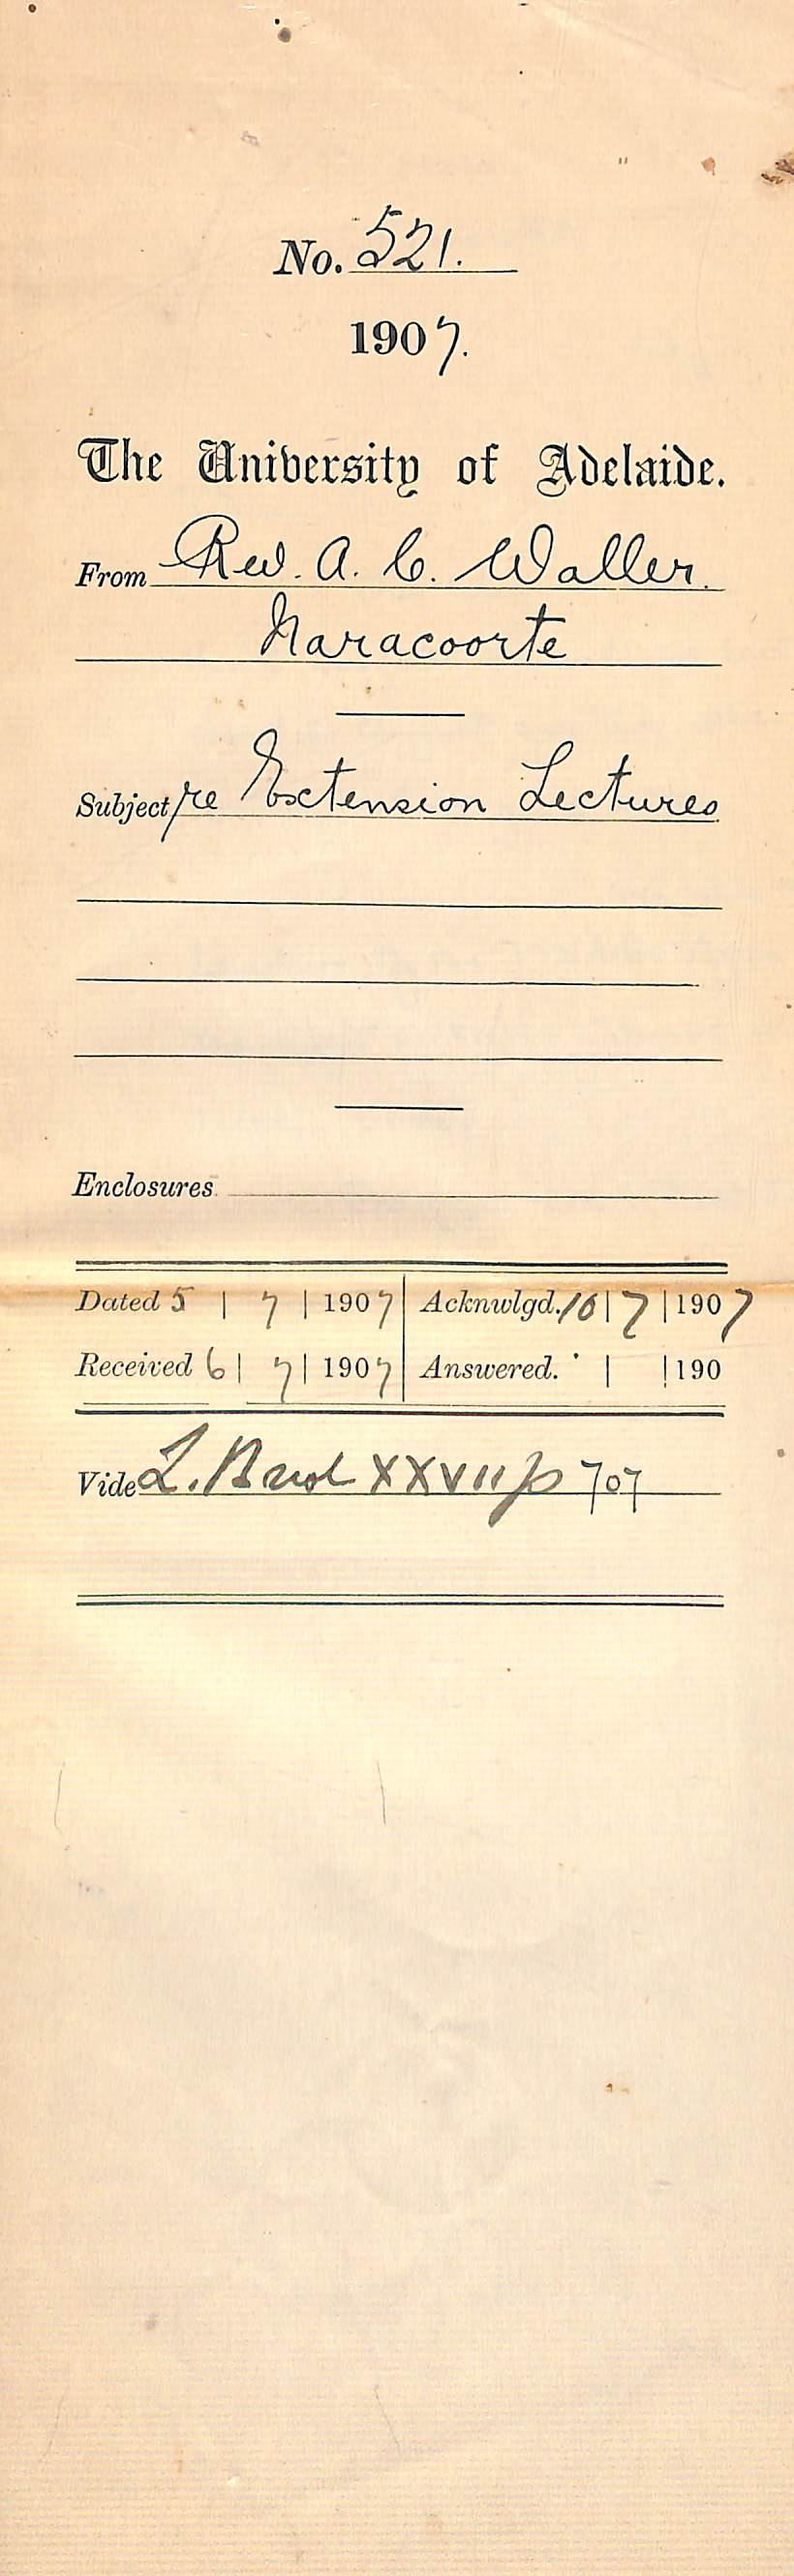 No. 521.
1907.
The University of Adelaide.
From Rev. A. C. Waller.
Naracoorte
Subject re Extension Lectures
Enclosures
Dated 5 | 7 | 1907 Acknwlgd. 10 | 7 | 1907
Received 6 | 7 | 1907 Answered. | | 190
Vide L. XXVII p 707